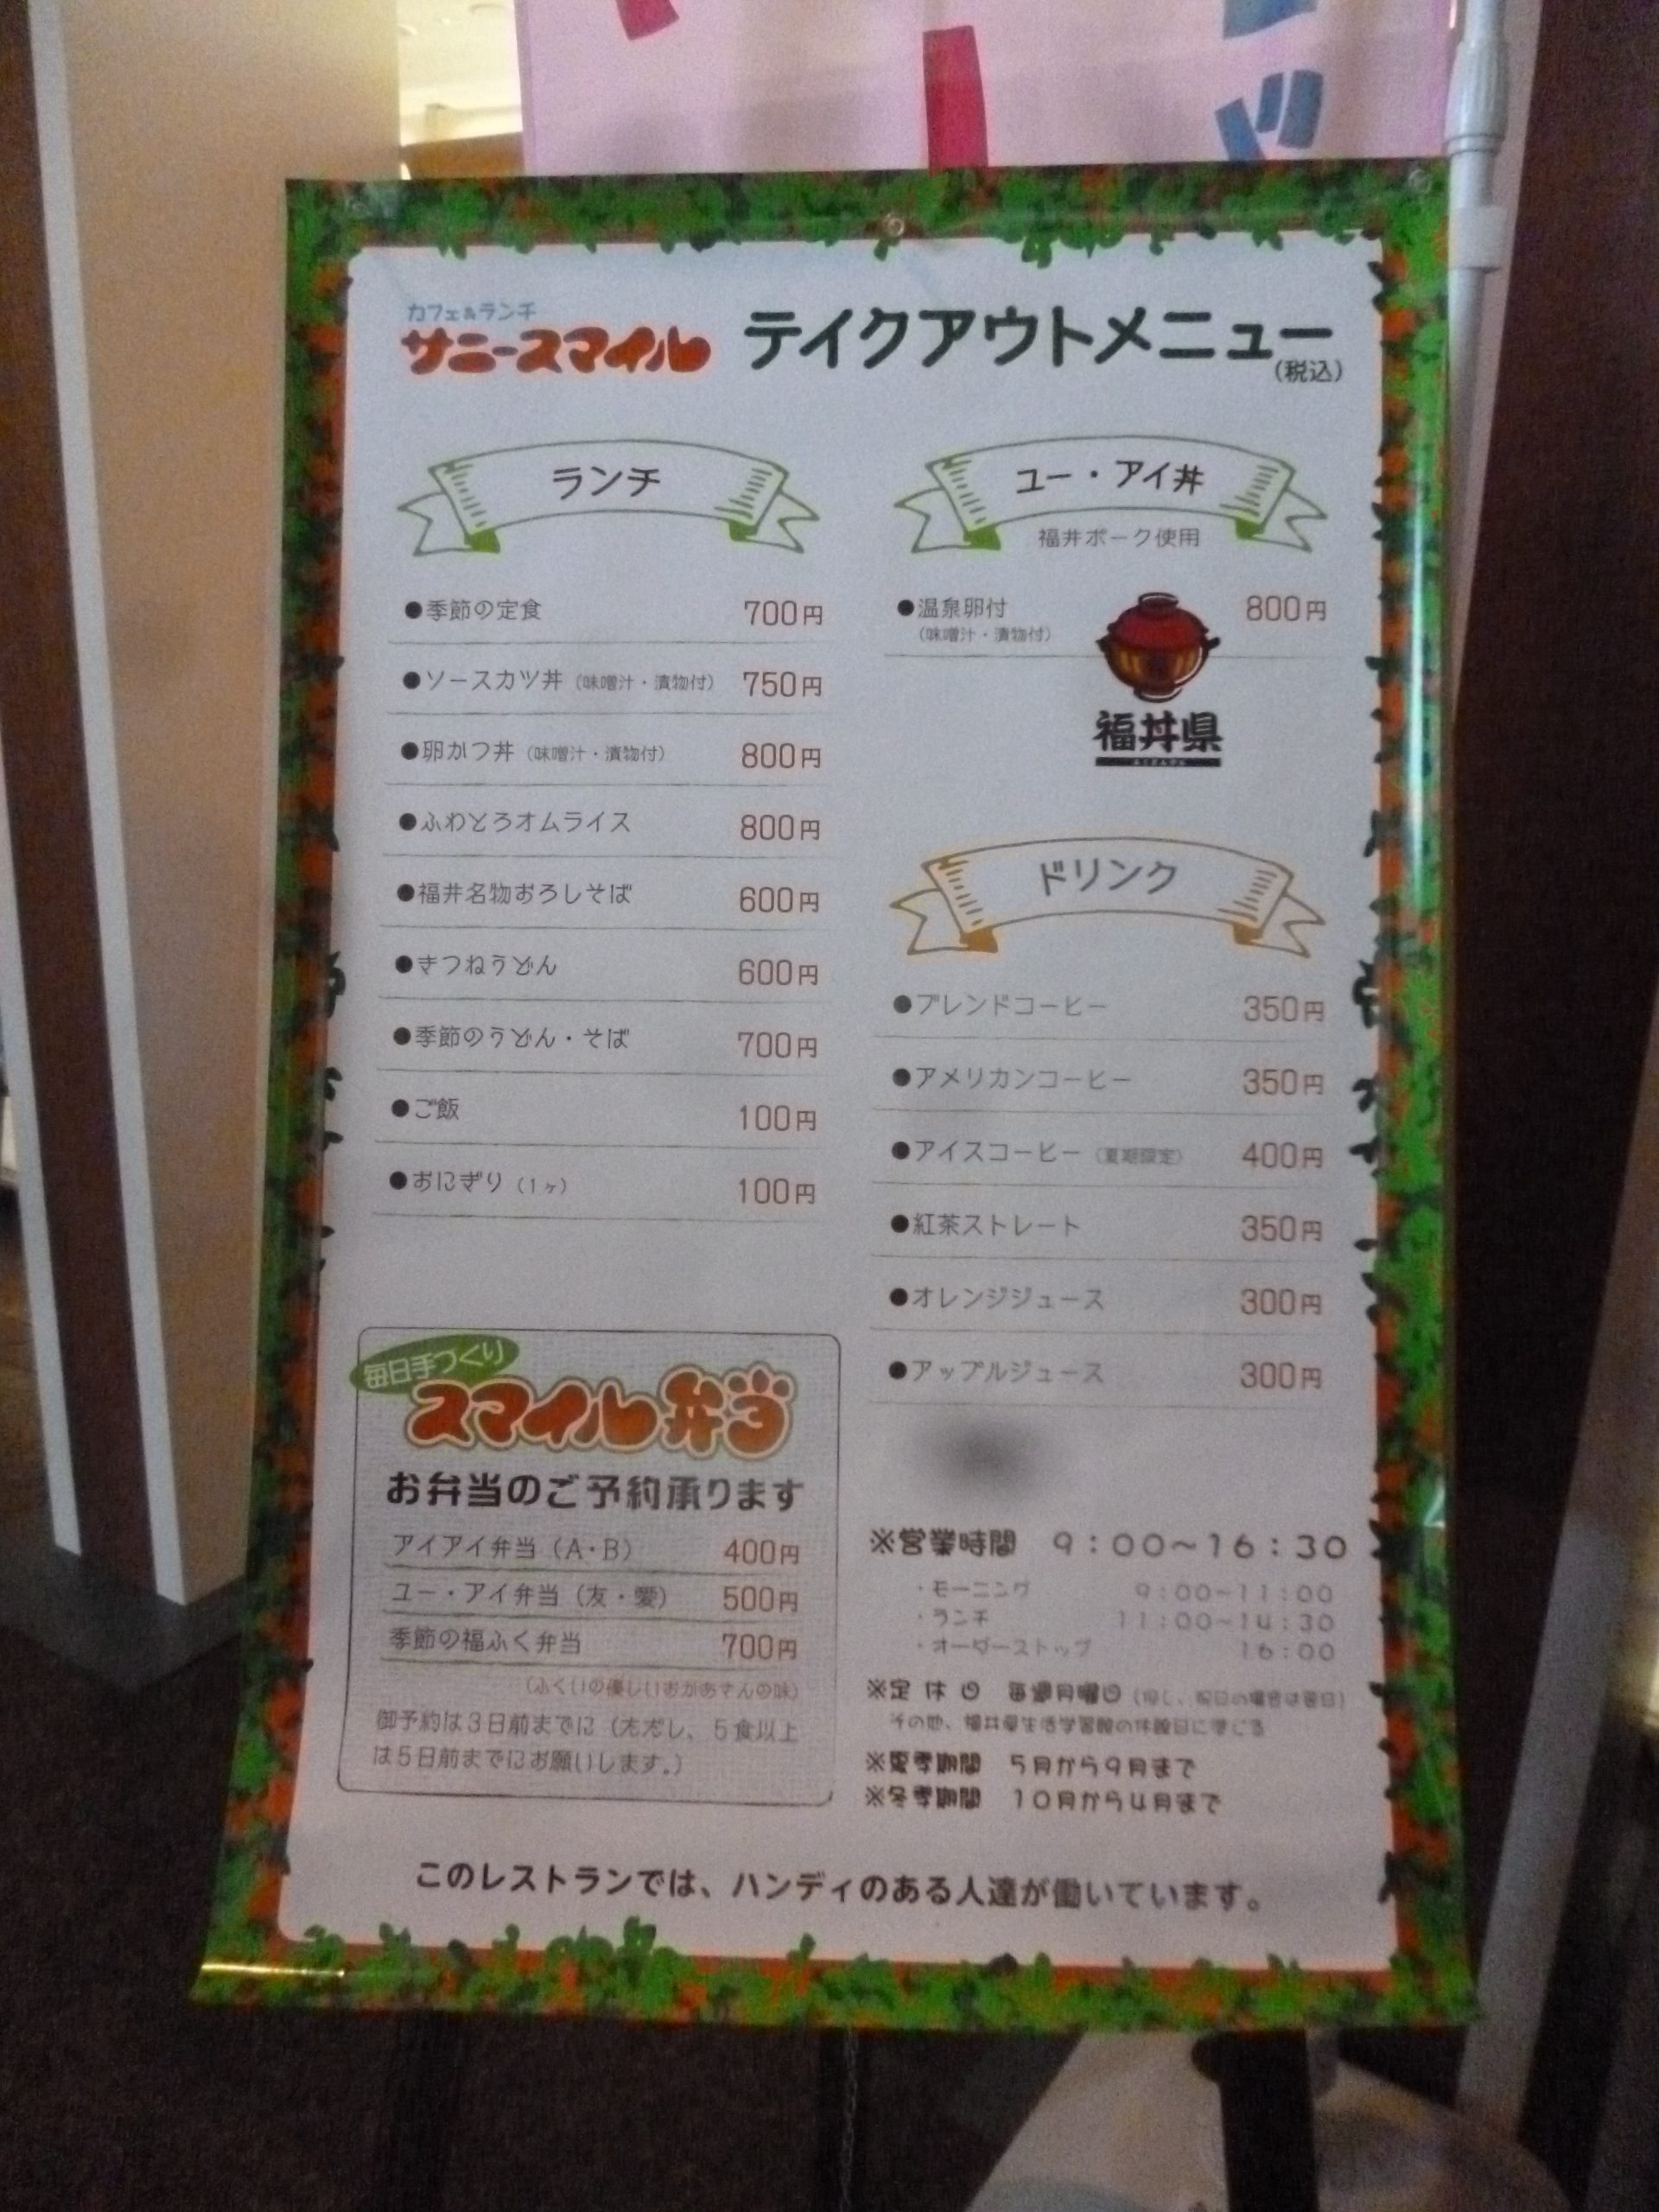 カフェ&ランチ
サニースマイル テイクアウトメニュー
(税込)
ランチ
●季節の定食 700円
●ソースカツ丼(味噌汁・漬物付) 750円
●卵かつ丼(味噌汁・漬物付) 800円
●ふわとろオムライス 800円
●福井名物おろしそば 600円
●きつねうどん 600円
●季節のうどん・そば 700円
●ご飯 100円
●おにぎり(1ヶ) 100円
毎日手づくり
スマイル弁当
お弁当のご予約承ります
アイアイ弁当(A・B) 400円
ユー・アイ弁当(友・愛) 500円
季節の福ふく弁当 700円
(ふくいの優しいおかあさんの味)
御予約は3日前までに(ただし、5食以上
は5日前までにお願いします。)
ユー・アイ丼
福井ポーク使用
●温泉卵付 800円
(味噌汁・漬物付)
福丼県
ドリンク
●ブレンドコーヒー 350円
●アメリカンコーヒー 350円
●アイスコーヒー(夏期限定) 400円
●紅茶ストレート 350円
●オレンジジュース 300円
●アップルジュース 300円
※営業時間 9:00〜16:30
・モーニング 9:00〜11:00
・ランチ 11:00〜14:30
・オーダーストップ 16:00
※定休日 毎週月曜日(但し、祝日の場合は翌日)
その他、福井県生活学習館の休館日に準じる
※夏季期間 5月から9月まで
※冬季期間 10月から4月まで
このレストランでは、ハンディのある人達が働いています。